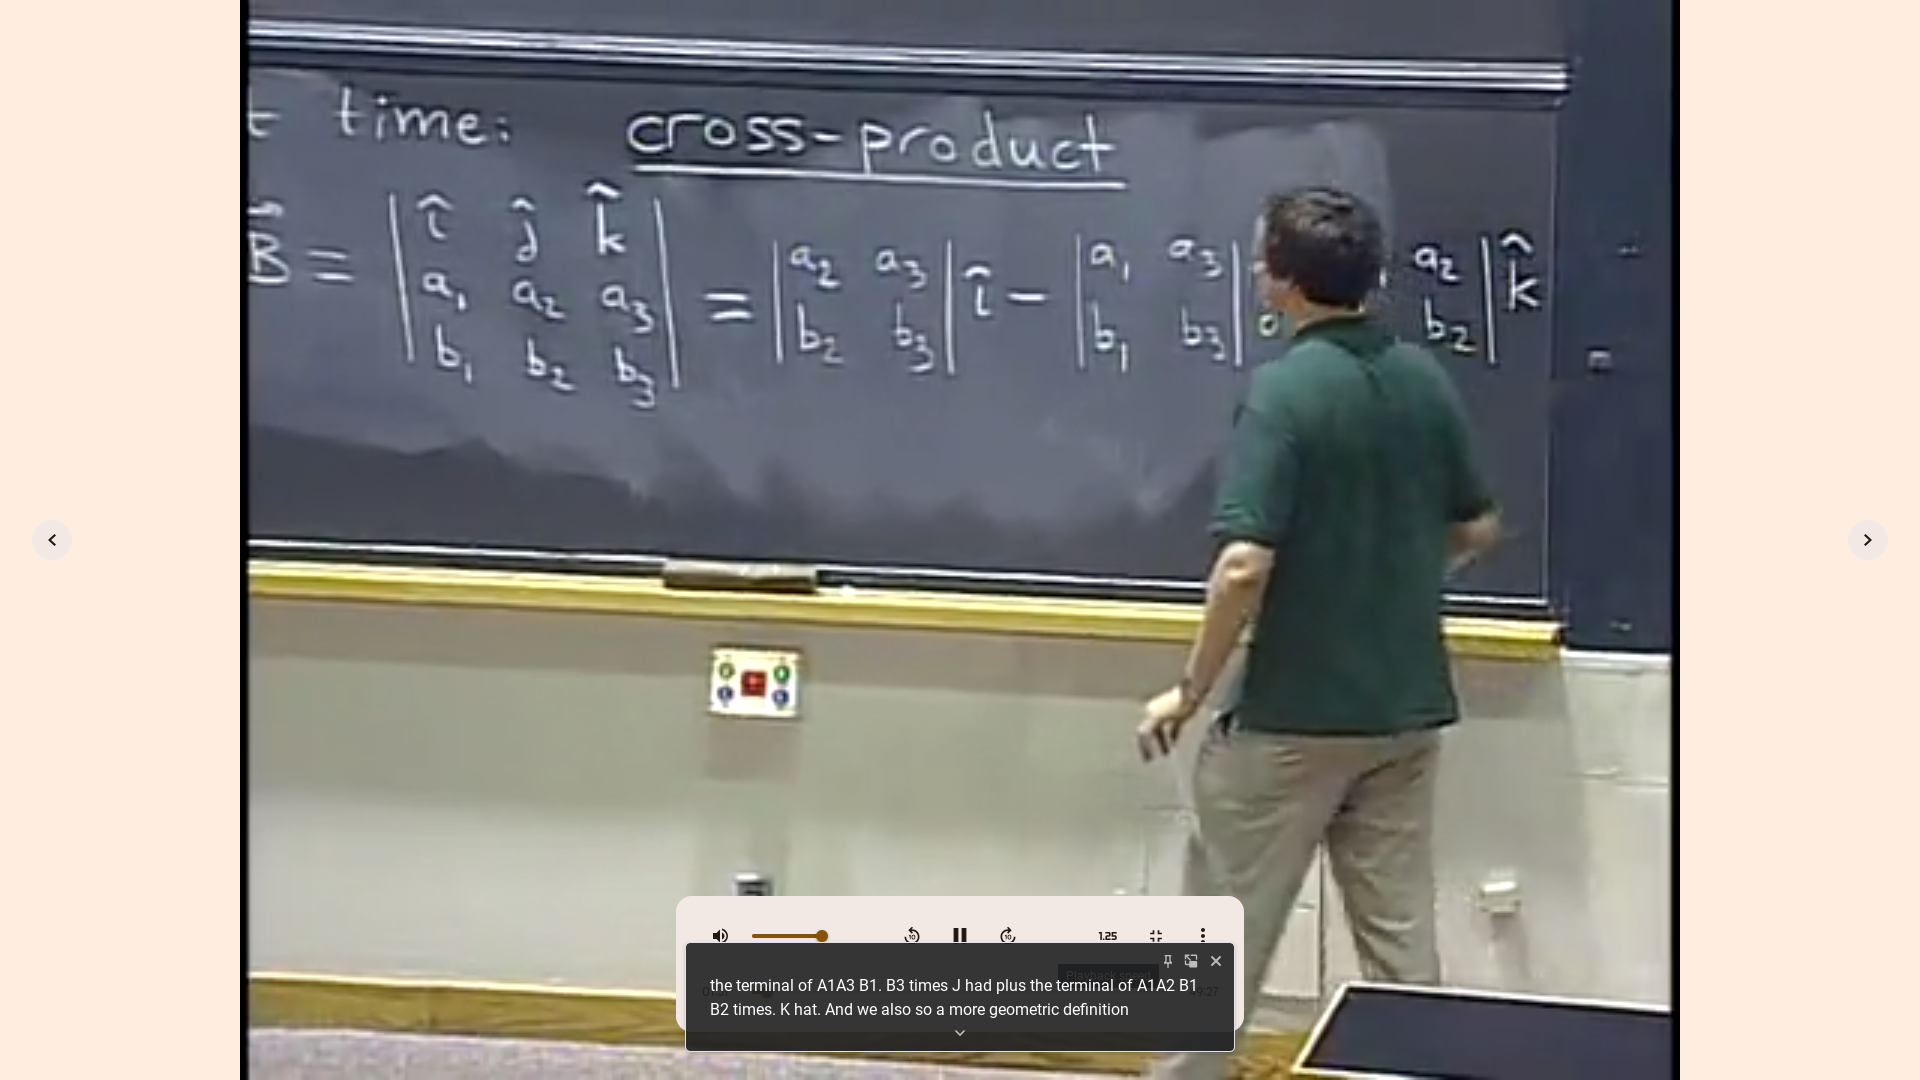 t time: cross-product
B = | î ĵ k̂ | = | a2 a3 | î - | a1 a3 | | a2 | k̂
a1 a2 a3 b2 b3 b1 b3 b2
b1 b2 b3
1.25
the terminal of A1A3 B1. B3 times J had plus the terminal of A1A2 B1
B2 times. K hat. And we also so a more geometric definition